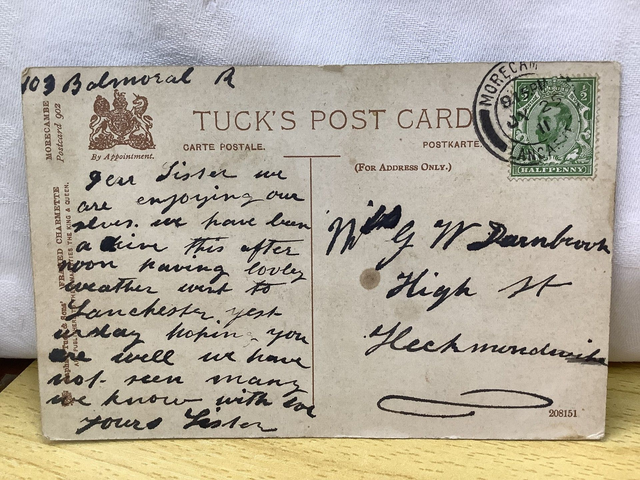 103 Balmoral R
MORECAMBE
Postcard 902
By Appointment.
TUCK'S POST CARD
CARTE POSTALE.
POSTKARTE.
(For Address Only.)
MORECAM
LANCA
HALFPENNY
FRAMED CHARMETTE
THE KING & QUEEN.
Dear Sister we
are enjoying our
selves. we have been
a drive this after
noon having lovley
weather went to
Lanchester yest
urday hoping you
are well we have
not seen many
we know with love
yours Sister
Mrs G W Darnbrook
High St
Heckmondwike
208151